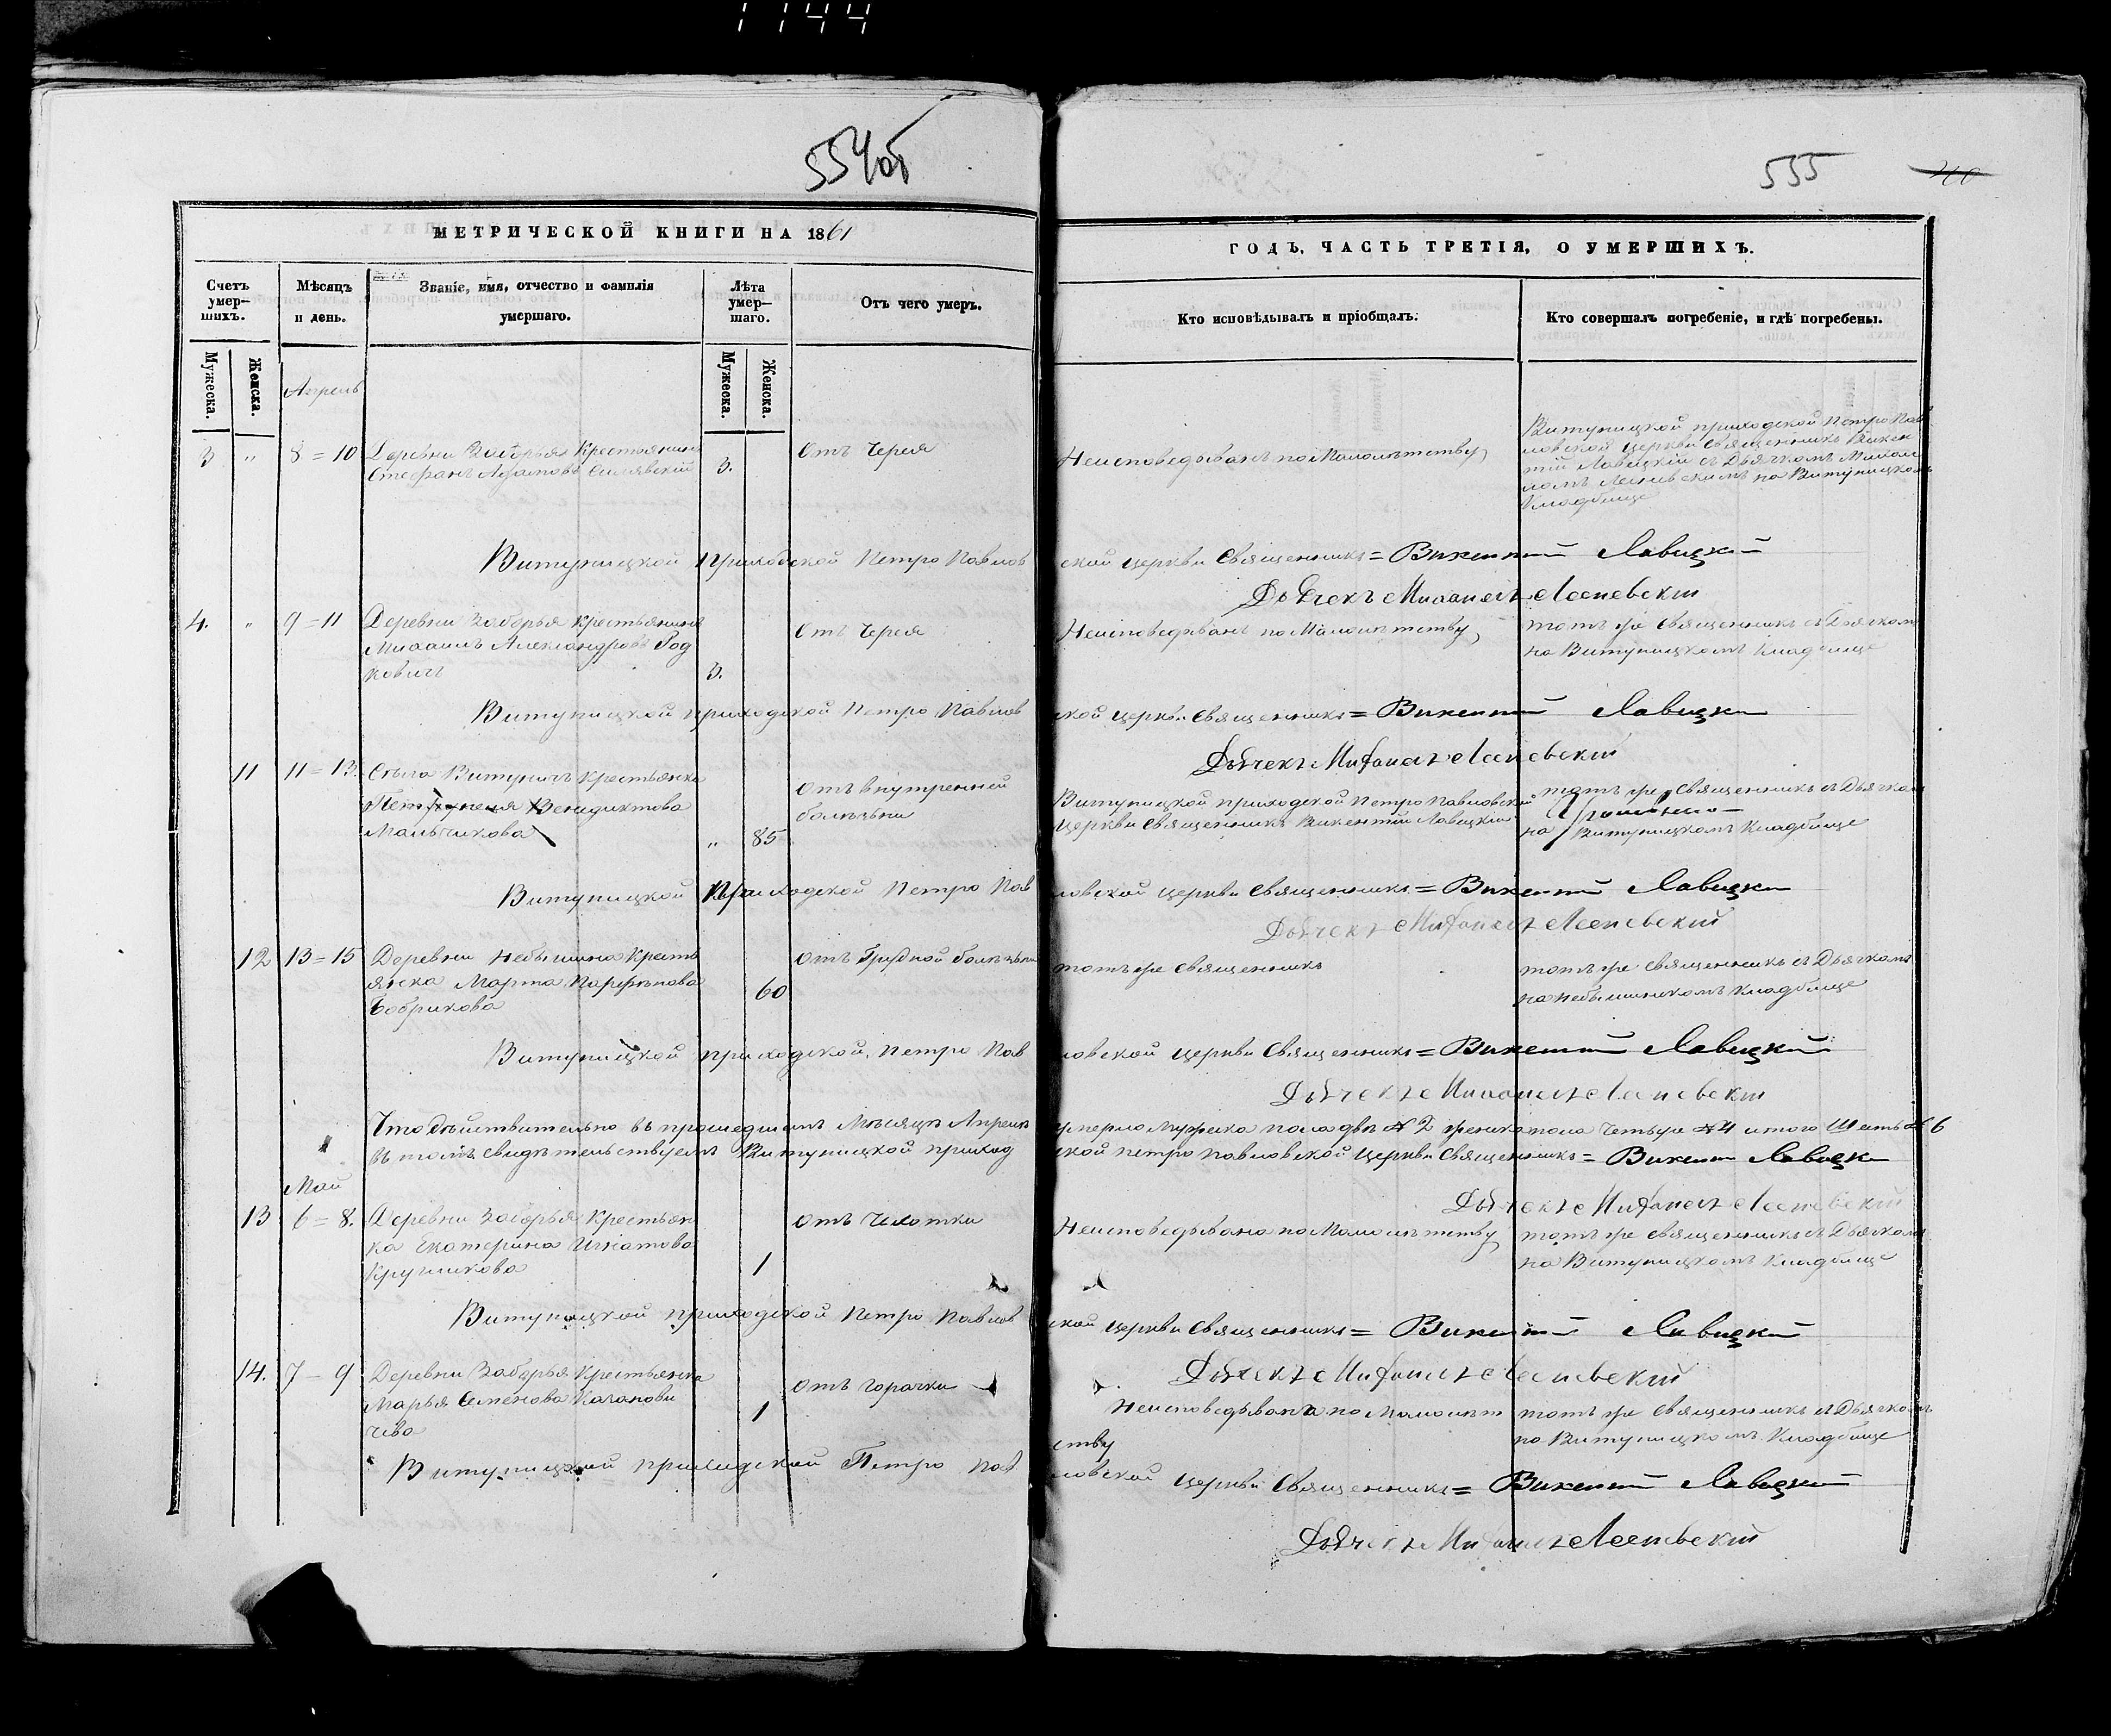 1144
554об
555
МЕТРИЧЕСКОЙ КНИГИ НА 1861
ГОДЪ, ЧАСТЬ ТРЕТІЯ, О УМЕРШИХЪ.
Счетъ умер—шихъ.
Мѣсяцъ и день.
Званіе, имя, отчество и фамилія умершаго.
Лѣта умер—шаго.
Отъ чего умеръ.
Кто исповѣдывалъ и пріобщалъ.
Кто совершалъ погребеніе, и гдѣ погребены.
Мужеска.
Женска.
Мужеска.
Женска.
Апрель
3 „ 8=10
Деревни Заборья Крестьянинъ
Стефанъ
3.
Отъ Черея
Неисповедыванъ по Малолѣтству
Витуницкой приходской Петро Пав
ловской Церкви Священникъ Викен
тій Лавицкій съ Дьячкомъ Михаи
ломъ на Витуницкомъ
Кладбище
Витуницкой Приходской Петро Павлов
ской Церкви Священникъ = Викентій Лавицкій
Дьячекъ Михаилъ
4. „ 9=11
Деревни Заборья Крестьянинъ
Михаилъ Александровъ Род
кевичъ
3.
Отъ Черея
Неисповедыванъ по Малолѣтству
тотъ же Священникъ съ Дьячкомъ
на Витуницкомъ Кладбище
Витуницкой приходской Петро Павлов
ской Церкви Священникъ = Викентій Лавицки
Дьячекъ Михаилъ
11 11=13.
Села Витуничъ Крестьянка
Венедиктова
Мальчикова
„ 85
Отъ внутренней
болѣзни
Витуницкой приходской Петро Павловской
Церкви Священникъ Викентій Лавицкій
тотъ же Священникъ съ Дьячкомъ
на Витуницкомъ Кладбище
Витуницкой Приходской Петро Пав
ловской Церкви Священникъ = Викентій Лавицки
Дьячекъ Михаилъ
12 13=15
Деревни Небышина Кресть
янка Марта Парфенова
Бобрикова
60
Отъ Грудной болѣзни
тотъ же Священникъ
тотъ же Священникъ съ Дьячкомъ
на Небышинскомъ Кладбище
Витуницкой приходской Петро Пав
ловской Церкви Священникъ = Викентій Лавицкій
Дьячекъ Михаилъ
Что действительно въ прошедшемъ Мѣсяцѣ Апрелѣ
умерло Мужеска пола два № 2 женска пола Четыре № 4 итого Шесть № 6
въ томъ свидѣтельствуемъ Витуницкой приход
ской Петро Павловской Церкви Священникъ = Викентій Лавицки
Дьячекъ Михаилъ
Май
13 6=8.
Деревни Заборья Крестьян
ка Екатерина Игнатова
Кругликова
1
Отъ Чахотки
Неисповедывана по Малолѣтству
тотъ же Священникъ съ Дьячкомъ
на Витуницкомъ Кладбище
Витуницкой приходской Петро Павлов
ской Церкви Священникъ = Викентій Лавицкій
Дьячекъ Михаилъ
14. 7–9
Деревни Заборья Крестьянка
Марья Семенова Качанови
чева
1
Отъ горячки
Неисповедывана по Малолѣт
ству
тотъ же Священникъ съ Дьячкомъ
на Витуницкомъ Кладбище
Витуницкой приходской Петро Пав
ловской Церкви Священникъ = Викентій Лавицкій
Дьячекъ Михаилъ